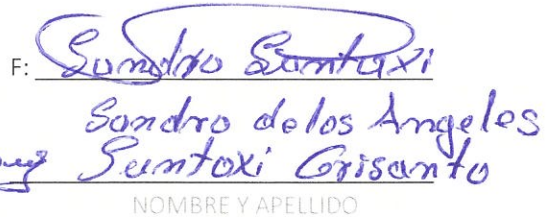 F: Sandro Suntaxi
Sandro delos Angeles
Suntaxi Grisanto
NOMBRE Y APELLIDO